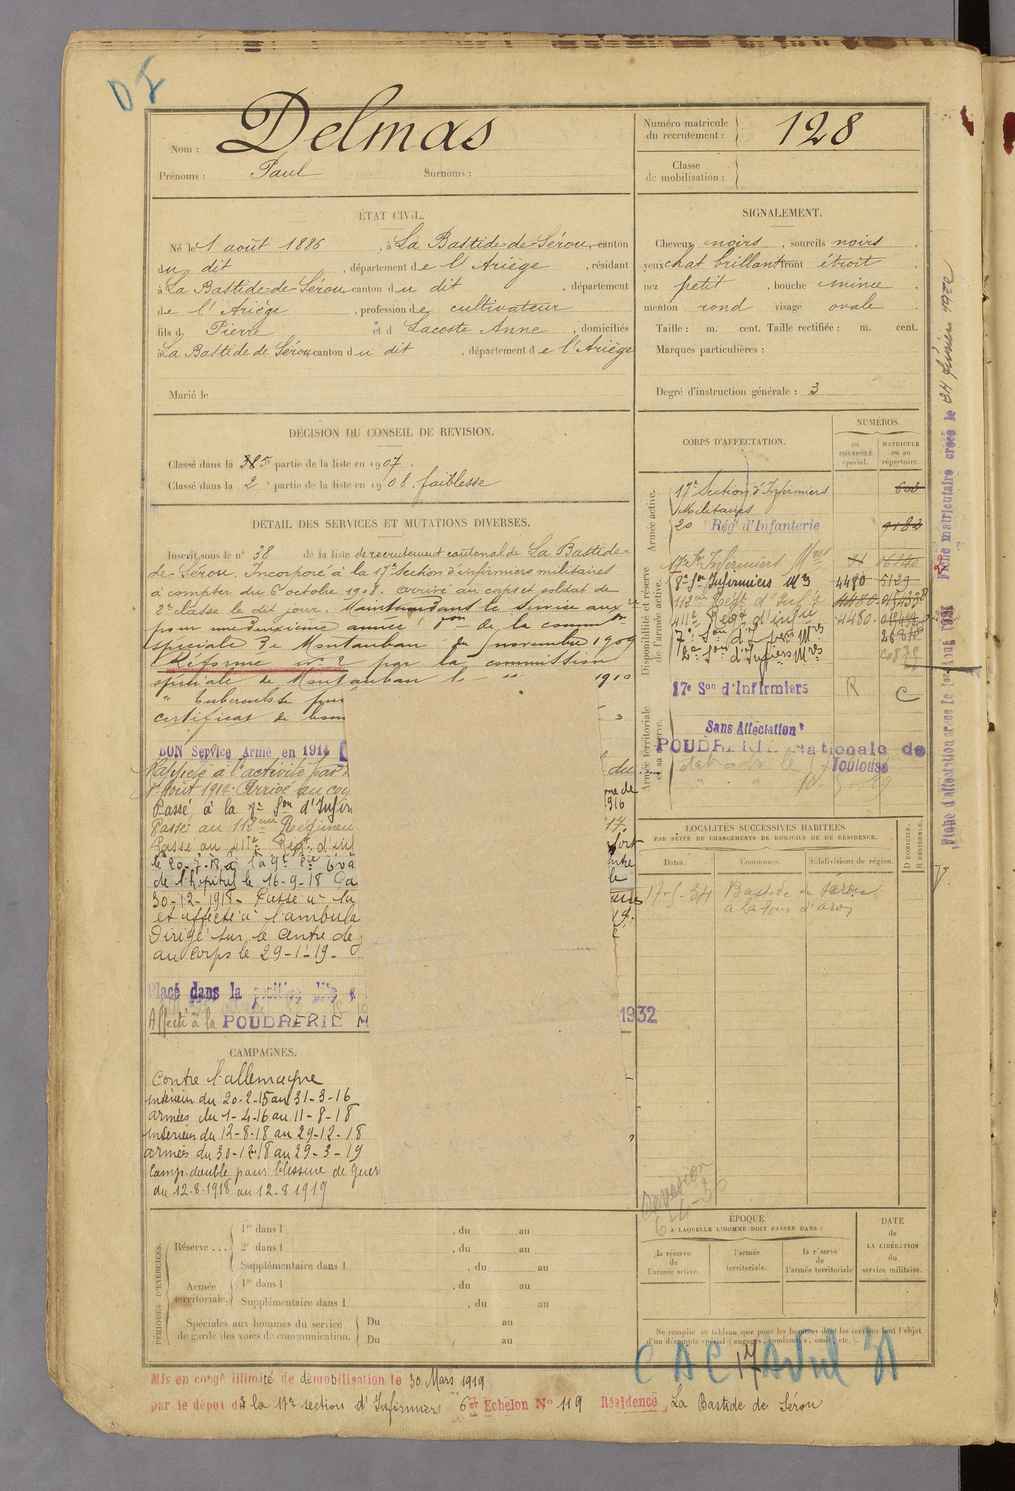 Nom : Delmas
Prénoms : Paul Surnoms :
Numéro matricule du recrutement : 128
Classe de mobilisation :
ÉTAT CIVIL.
Né le 1 août 1886, à La Bastide-de-Sérou, canton
du dit, département de l'Ariège, résidant
à La Bastide-de-Sérou canton du dit, département
de l'Ariège, profession de cultivateur
fils de Pierre et d Lacoste Anne, domiciliés
à La Bastide de Sérou canton du dit, département de l'Ariège
Marié le
SIGNALEMENT.
Cheveux noirs, sourcils noirs
yeux chat brillant front étroit
nez petit, bouche mince
menton rond visage ovale
Taille : m. cent. Taille rectifiée : m. cent.
Marques particulières :
Degré d'instruction générale : 3
DÉCISION DU CONSEIL DE REVISION.
Classé dans la 5e partie de la liste en 1907.
Classé dans la 2e partie de la liste en 1908. faiblesse
DÉTAIL DES SERVICES ET MUTATIONS DIVERSES.
Inscrit sous le n° 38 de la liste de recrutement cantonal de La Bastide-
de-Sérou. Incorporé à la 17e Section d'infirmiers militaires
à compter du 6 octobre 1908. arrivé au corps et soldat de
2e classe le dit jour. Maintenu dans le service aux re
pour une deuxième année, de la comm on
spéciale de Montauban du novembre 1909
Réformé n° 2 par la commission
spéciale de Montauban le 1910
Tuberculose
certificat de
BON Service Armé en 1914
Rappelé à l'activité par
août 1914. Arrivé au
Passé à la 7e Son d'Infir
Passé au 112ème Régimen
Passé au 411e Regt d'inf
le 20-7-18
de l'hôpital le 16-9-18
30-12-1918. Passé à la
et affecté à l'ambula
Dirigé sur le centre de
au corps le 29-1-19.
Placé dans la
Affecté à la POUDRERIE
1932
CAMPAGNES.
Contre l'allemagne
intérieur du 20-2-15 au 31-3-16
armées du 1-4-16 au 11-8-18
intérieur du 12-8-18 au 29-12-18
armées du 30-12-18 au 29-3-19
Camp. double pour blessure de guer
du 12.8.1918 au 12.8.1919
CORPS D'AFFECTATION.
NUMÉROS
AU CONTRÔLE spécial.
MATRICULE ou au répertoire.
Armée active.
17e Section d'Infirmiers
Militaires
20 Régt d'Infanterie 9183
Disponibilité et réserve de l'armée active.
17e Son Infirmiers Mres
8e Son Infirmiers Mres 4480 5129
112ème Regt d'Inf
411e Regt d'infie 4480
7e Son d'Infiers Mres
2e Son d'Infiers Mres
Armée territoriale et sa réserve.
17e Son d'Infirmiers R C
Sans Affectation
POUDRERIE Nationale de
Toulouse
LOCALITÉS SUCCESSIVES HABITÉES
PAR SUITE DE CHANGEMENTS DE DOMICILE OU DE RÉSIDENCE.
Dates. Communes. Subdivisions de région. D DOMICILE. R RÉSIDENCE.
Bastide de Sérou
ÉPOQUE
À LAQUELLE L'HOMME DOIT PASSER DANS :
la réserve de l'armée active.
l'armée territoriale.
la réserve de l'armée territoriale
DATE de LA LIBÉRATION du service militaire.
Ne remplir ce tableau que pour les hommes dont les services font l'objet
d'un décompte spécial (engagés, condamnés, omis, etc.).
PÉRIODES D'EXERCICES.
Réserve... 1re dans l , du au
2e dans l , du au
Supplémentaire dans l , du au
Armée territoriale. 1re dans l , du au
Supplémentaire dans l , du au
Spéciales aux hommes du service de garde des voies de communication. Du au
Du au
CAC 17 Avril 31
Mis en congé illimité de démobilisation le 30 Mars 1919
par le dépôt de la 17e section d'Infirmiers 6e Echelon N° 119 Résidence La Bastide de Sérou
Fiche matriculaire créée le 24 février 1932
Fiche d'affectation créée le 1er Août 1931